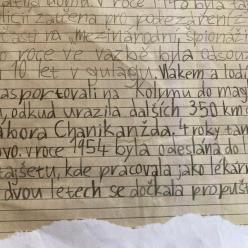 vojna. V roce 194 byla za
zatčena pro podezření z
účasti na mezinárodní špionáž
po roce ve vazbě byla odsou
10 let v gulagu. Vlakem a lodí
nasportovali na Kolymu do mag
, odkud urazila dalších 350 km d
ábora Chanikanžda. 4 roky tam
vo. V roce 1954 byla odeslána do l
tajšetu, kde pracovala jako lékař
dvou letech se dočkala propušt